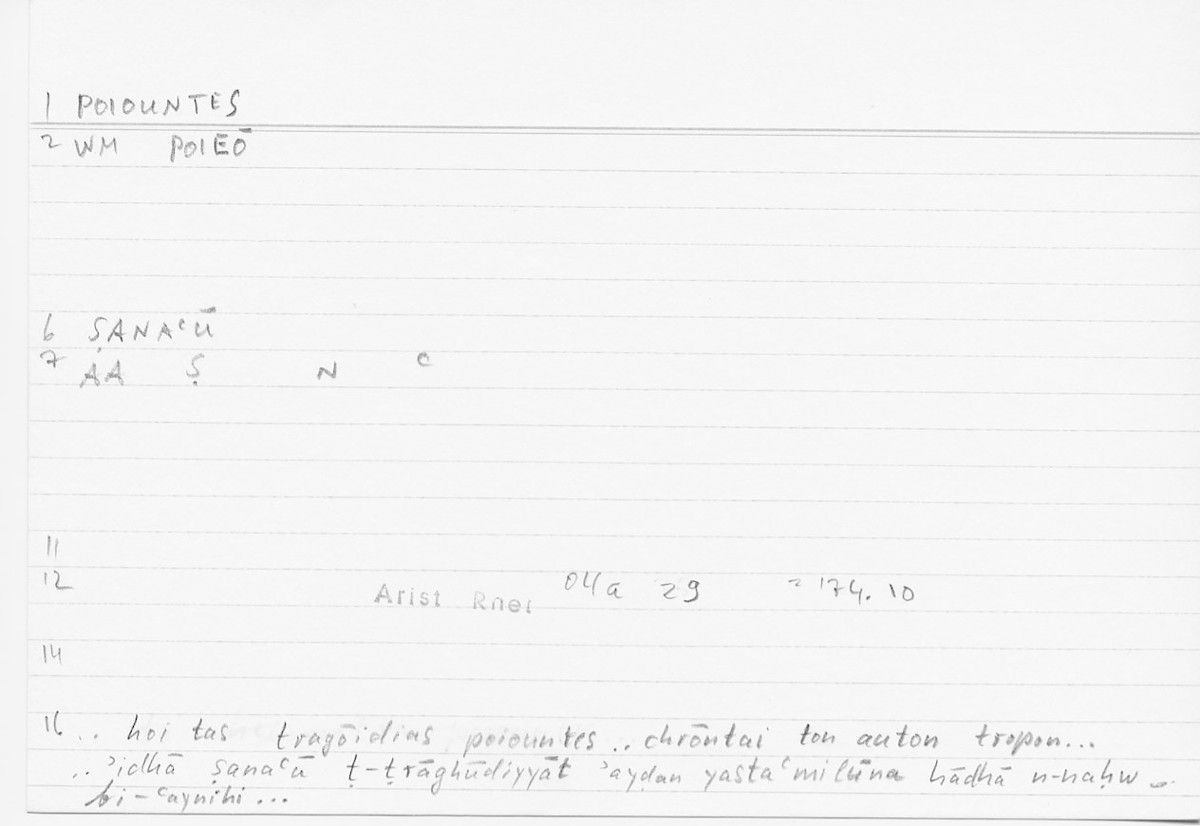 1 POIOUNTES
2 WM POIEŌ
6 ṢANAᶜŪ
7 AA Ṣ N ᶜ
11
12 Arist Rhet 04a 29 = 174. 10
14
16 .. hoi tas tragōidias poiountes .. chrōntai ton auton tropon...
.. ʾidhā ṣanaᶜū ṭ-ṭrāghūdiyyāt ʾayḍan yastaᶜmilūna hādhā n-naḥw
bi-ᶜaynihi...